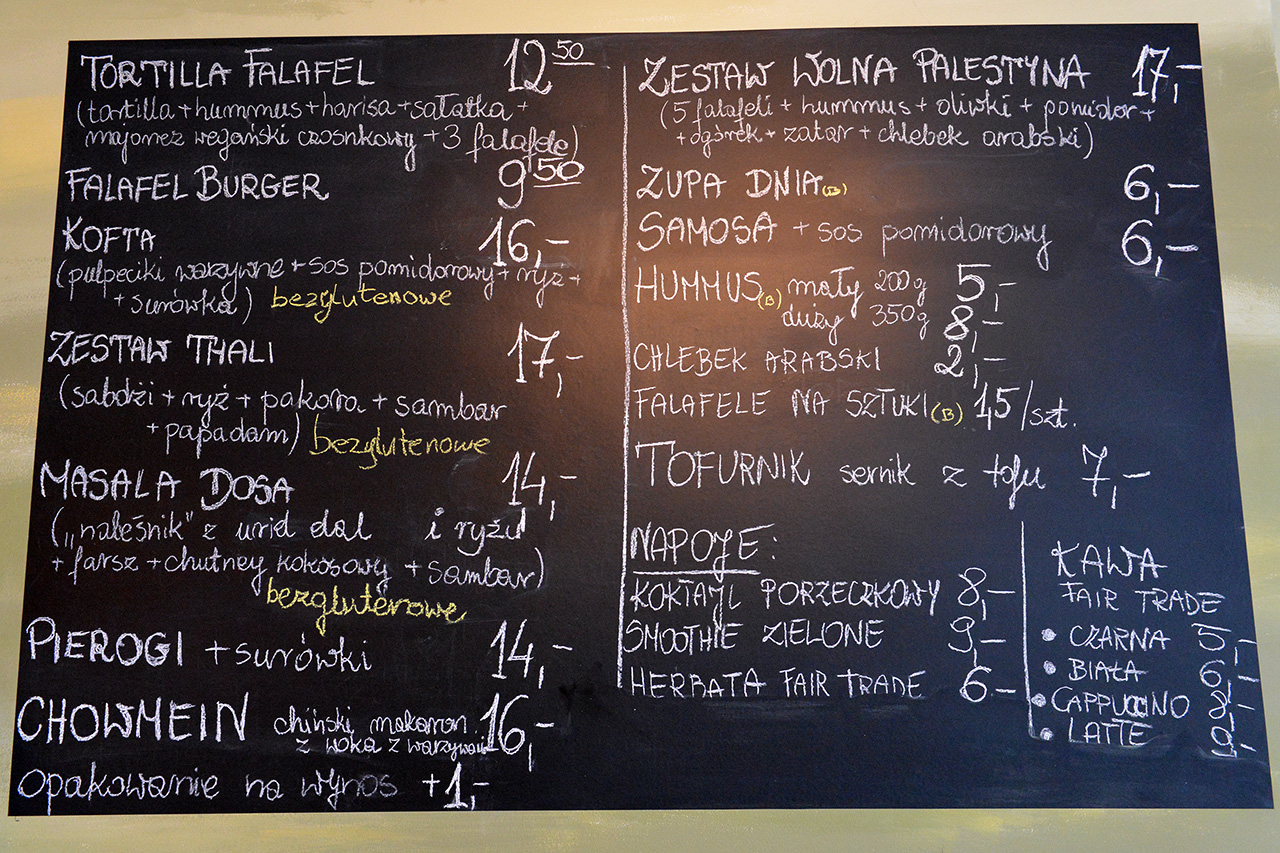 TORTILLA FALAFEL 12 50
(tortilla + hummus + harisa + sałatka +
majonez wegański czosnkowy + 3 falafele)
FALAFEL BURGER 9 50
KOFTA 16,-
(pulpeciki warzywne + sos pomidorowy + ryż +
+ surówka) bezglutenowe
ZESTAW THALI 17,-
(sabdżi + ryż + pakora + sambar
+ papadam) bezglutenowe
MASALA DOSA 14,-
(„naleśnik" z urid dal i ryżu
+ farsz + chutney kokosowy + sambar)
bezglutenowe
PIEROGI + surówki 14,-
CHOWMEIN chiński makaron 16,-
z woka z warzywami
opakowanie na wynos +1,-
ZESTAW WOLNA PALESTYNA 17,-
(5 falafeli + hummus + oliwki + pomidor +
+ ogórek + zatar + chlebek arabski)
ZUPA DNIA (B) 6,-
SAMOSA + sos pomidorowy 6,-
HUMMUS (B) mały 200g 5,-
duży 350g 8,-
CHLEBEK ARABSKI 2,-
FALAFELE NA SZTUKI (B) 1,5/szt.
TOFURNIK sernik z tofu 7,-
NAPOJE:
KOKTAJL PORZECZKOWY 8,-
SMOOTHIE ZIELONE 9,-
HERBATA FAIR TRADE 6-
KAWA
FAIR TRADE
• CZARNA 5,-
• BIAŁA 6,-
• CAPPUCCINO 8,-
• LATTE 9,-